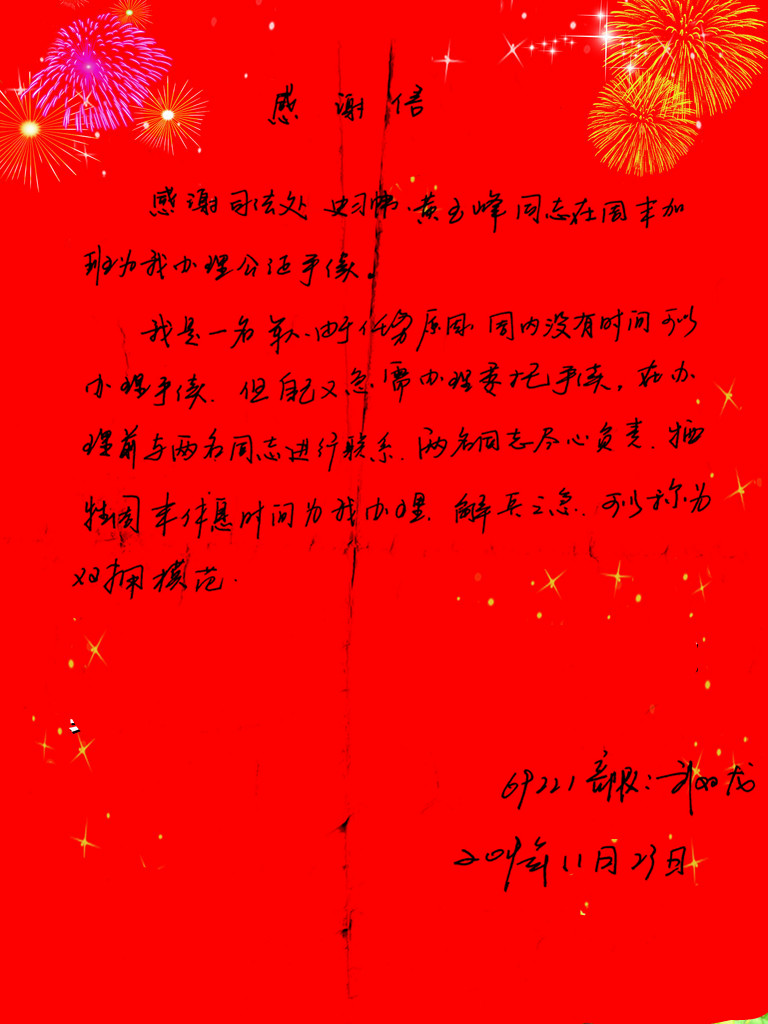 感谢信
感谢司法处 史习伟、黄玉峰同志在周末加
班为我办理公证手续。
我是一名军人,由于任务原因,周内没有时间可以
办理手续,但自己又急需办理委托手续,在办
理前与两名同志进行联系,两名同志尽心负责,牺
牲周末休息时间为我办理,解兵之急,可以称为
双拥模范.
69221部队:
年11月23日